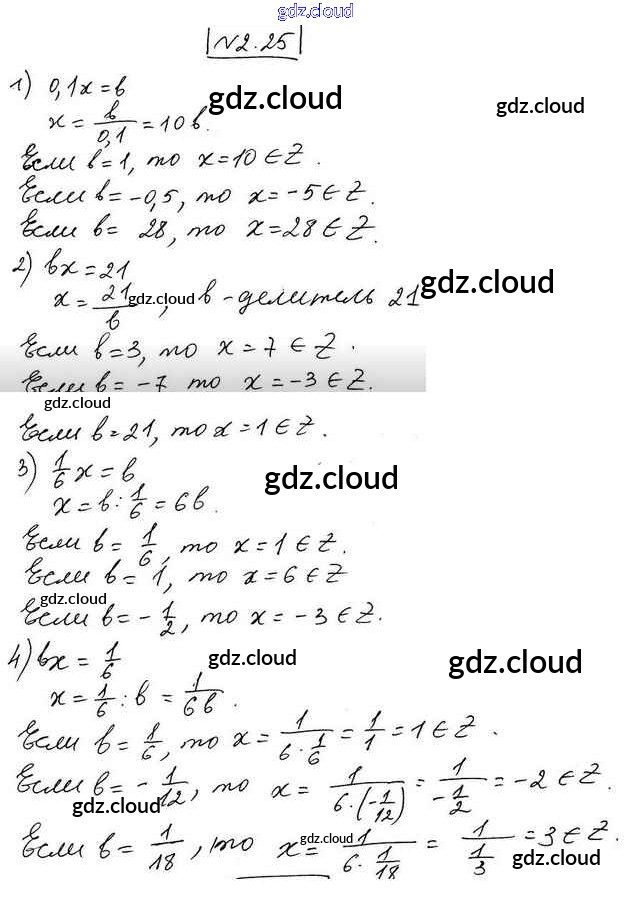 gdz.cloud
№2.25
1) 0,1x=b
gdz.cloud
gdz.cloud
x = b/0,1 = 10b.
Если b=1, то x=10∈Z.
Если b=-0,5, то x=-5∈Z.
Если b= 28, то x=28∈Z.
2) bx=21
x= 21/b, b-делитель 21
gdz.cloud
gdz.cloud
Если b=3, то x=7∈Z.
Если b= -7 то x=-3∈Z.
gdz.cloud
Если b=21, то x=1∈Z.
3) 1/6 x=b
gdz.cloud
x=b:1/6=6b.
Если b= 1/6, то x=1∈Z.
Если b= 1, то x=6∈Z
gdz.cloud
Если b=-1/2, то x=-3∈Z.
4) bx= 1/6
gdz.cloud
gdz.cloud
x=1/6:b = 1/6b.
Если b=1/6, то x= 1/6·1/6 = 1/1 =1∈Z.
Если b=-1/12, то x= 1/6·(-1/12) = 1/-1/2 = -2∈Z.
gdz.cloud
Если b= 1/18, то x= 1/6·1/18 = 1/1/3 =3∈Z.
gdz.cloud
gdz.cloud